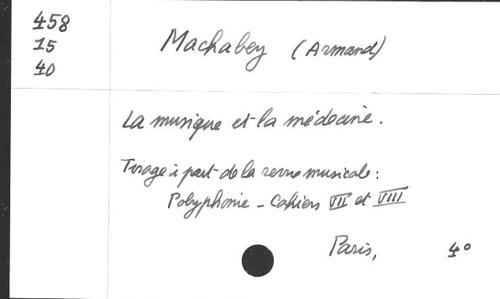 458
15
40
Machabey (Armand)
La musique et la médecine.
Tirage à part de la revue musicale :
Polyphonie - Cahiers VII et VIII
Paris, 4°